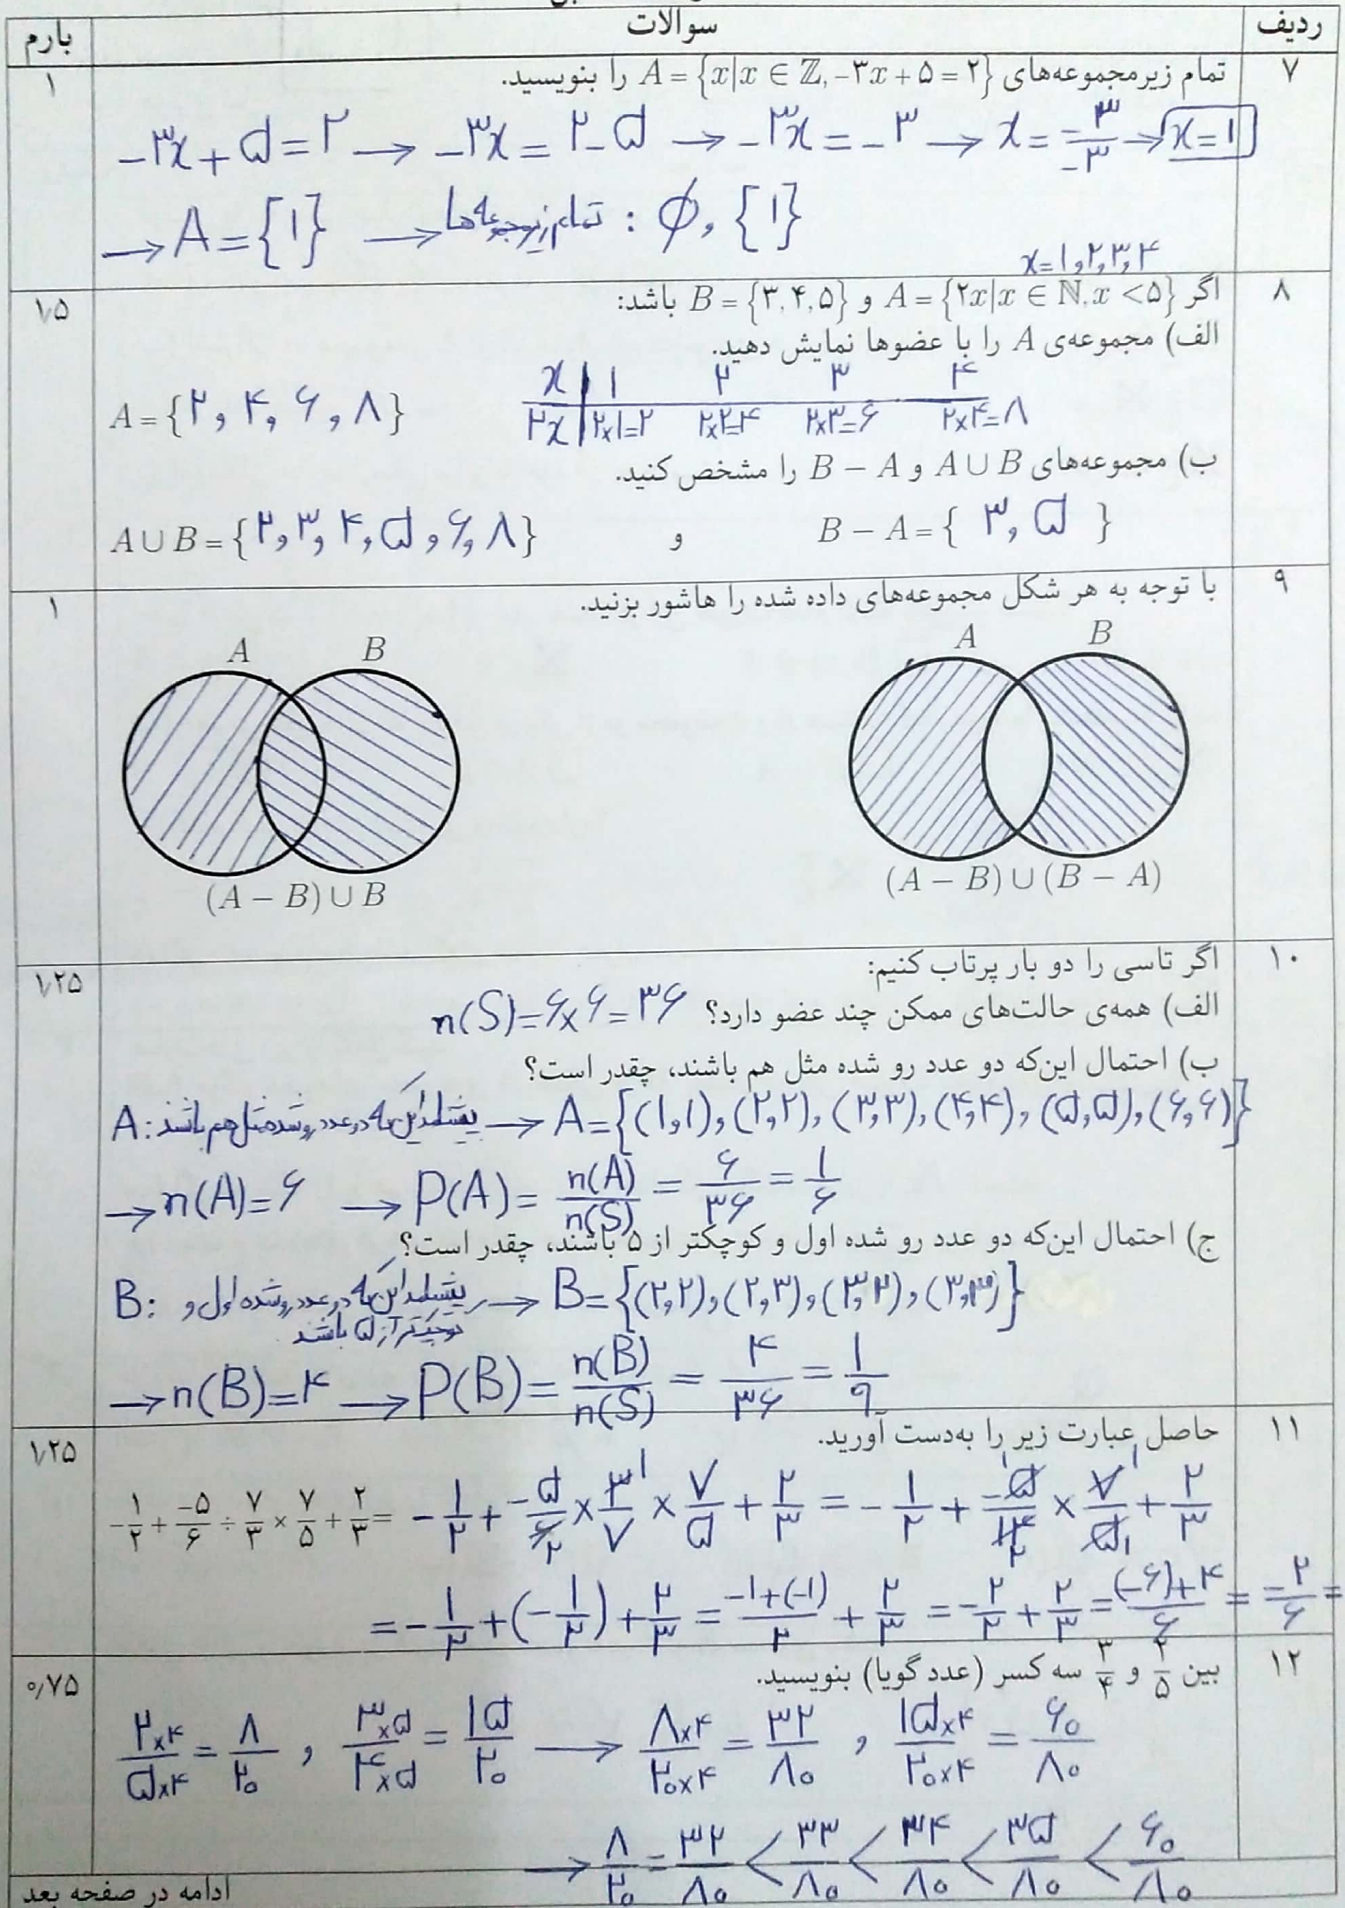 ردیف سوالات بارم
۷ تمام زیرمجموعه‌های A = {x|x ∈ ℤ, -۳x + ۵ = ۲} را بنویسید. ۱
-۳x + ۵ = ۲ → -۳x = ۲ - ۵ → -۳x = -۳ → x = -۳/-۳ → x = ۱
→ A = {۱} → تمام زیرمجموعه‌ها : ∅, {۱}
x = ۱, ۲, ۳, ۴
۸ اگر A = {۲x|x ∈ ℕ, x < ۵} و B = {۳, ۴, ۵} باشد: ۱٫۵
الف) مجموعه‌ی A را با عضوها نمایش دهید.
x | ۱ ۲ ۳ ۴
A = {۲, ۴, ۶, ۸} ۲x | ۲×۱=۲ ۲×۲=۴ ۲×۳=۶ ۲×۴=۸
ب) مجموعه‌های A ∪ B و B − A را مشخص کنید.
A ∪ B = {۲, ۳, ۴, ۵, ۶, ۸} و B − A = { ۳, ۵ }
۹ با توجه به هر شکل مجموعه‌های داده شده را هاشور بزنید. ۱
A B A B
(A − B) ∪ B (A − B) ∪ (B − A)
۱۰ اگر تاسی را دو بار پرتاب کنیم: ۱٫۲۵
الف) همه‌ی حالت‌های ممکن چند عضو دارد؟ n(S) = ۶×۶ = ۳۶
ب) احتمال این‌که دو عدد رو شده مثل هم باشند، چقدر است؟
A: پیشامد این که دو عدد رو شده مثل هم باشند → A = {(۱,۱), (۲,۲), (۳,۳), (۴,۴), (۵,۵), (۶,۶)}
→ n(A) = ۶ → P(A) = n(A)/n(S) = ۶/۳۶ = ۱/۶
ج) احتمال این‌که دو عدد رو شده اول و کوچکتر از ۵ باشند، چقدر است؟
B: پیشامد این که دو عدد رو شده اول و → B = {(۲,۲), (۲,۳), (۳,۲), (۳,۳)}
کوچکتر از ۵ باشند
→ n(B) = ۴ → P(B) = n(B)/n(S) = ۴/۳۶ = ۱/۹
۱۱ حاصل عبارت زیر را به‌دست آورید. ۱٫۲۵
-۱/۲ + -۵/۶ ÷ ۷/۳ × ۷/۵ + ۲/۳ = -۱/۲ + -۵/۶ ۲ × ۳/۷ ۱ × ۷/۵ + ۲/۳ = -۱/۲ + -۵/۱۴ ۱ ۲ × ۷/۵ ۱ ۱ + ۲/۳
= -۱/۲ + (-۱/۲) + ۲/۳ = -۱+(-۱)/۲ + ۲/۳ = -۲/۲ + ۲/۳ = (-۶)+۴/۶ = -۲/۶ =
۱۲ بین ۲/۵ و ۳/۴ سه کسر (عدد گویا) بنویسید. ۰٫۷۵
۲×۴/۵×۴ = ۸/۲۰ , ۳×۵/۴×۵ = ۱۵/۲۰ → ۸×۴/۲۰×۴ = ۳۲/۸۰ , ۱۵×۴/۲۰×۴ = ۶۰/۸۰
→ ۸/۲۰ = ۳۲/۸۰ < ۳۳/۸۰ < ۳۴/۸۰ < ۳۵/۸۰ < ۶۰/۸۰
ادامه در صفحه بعد